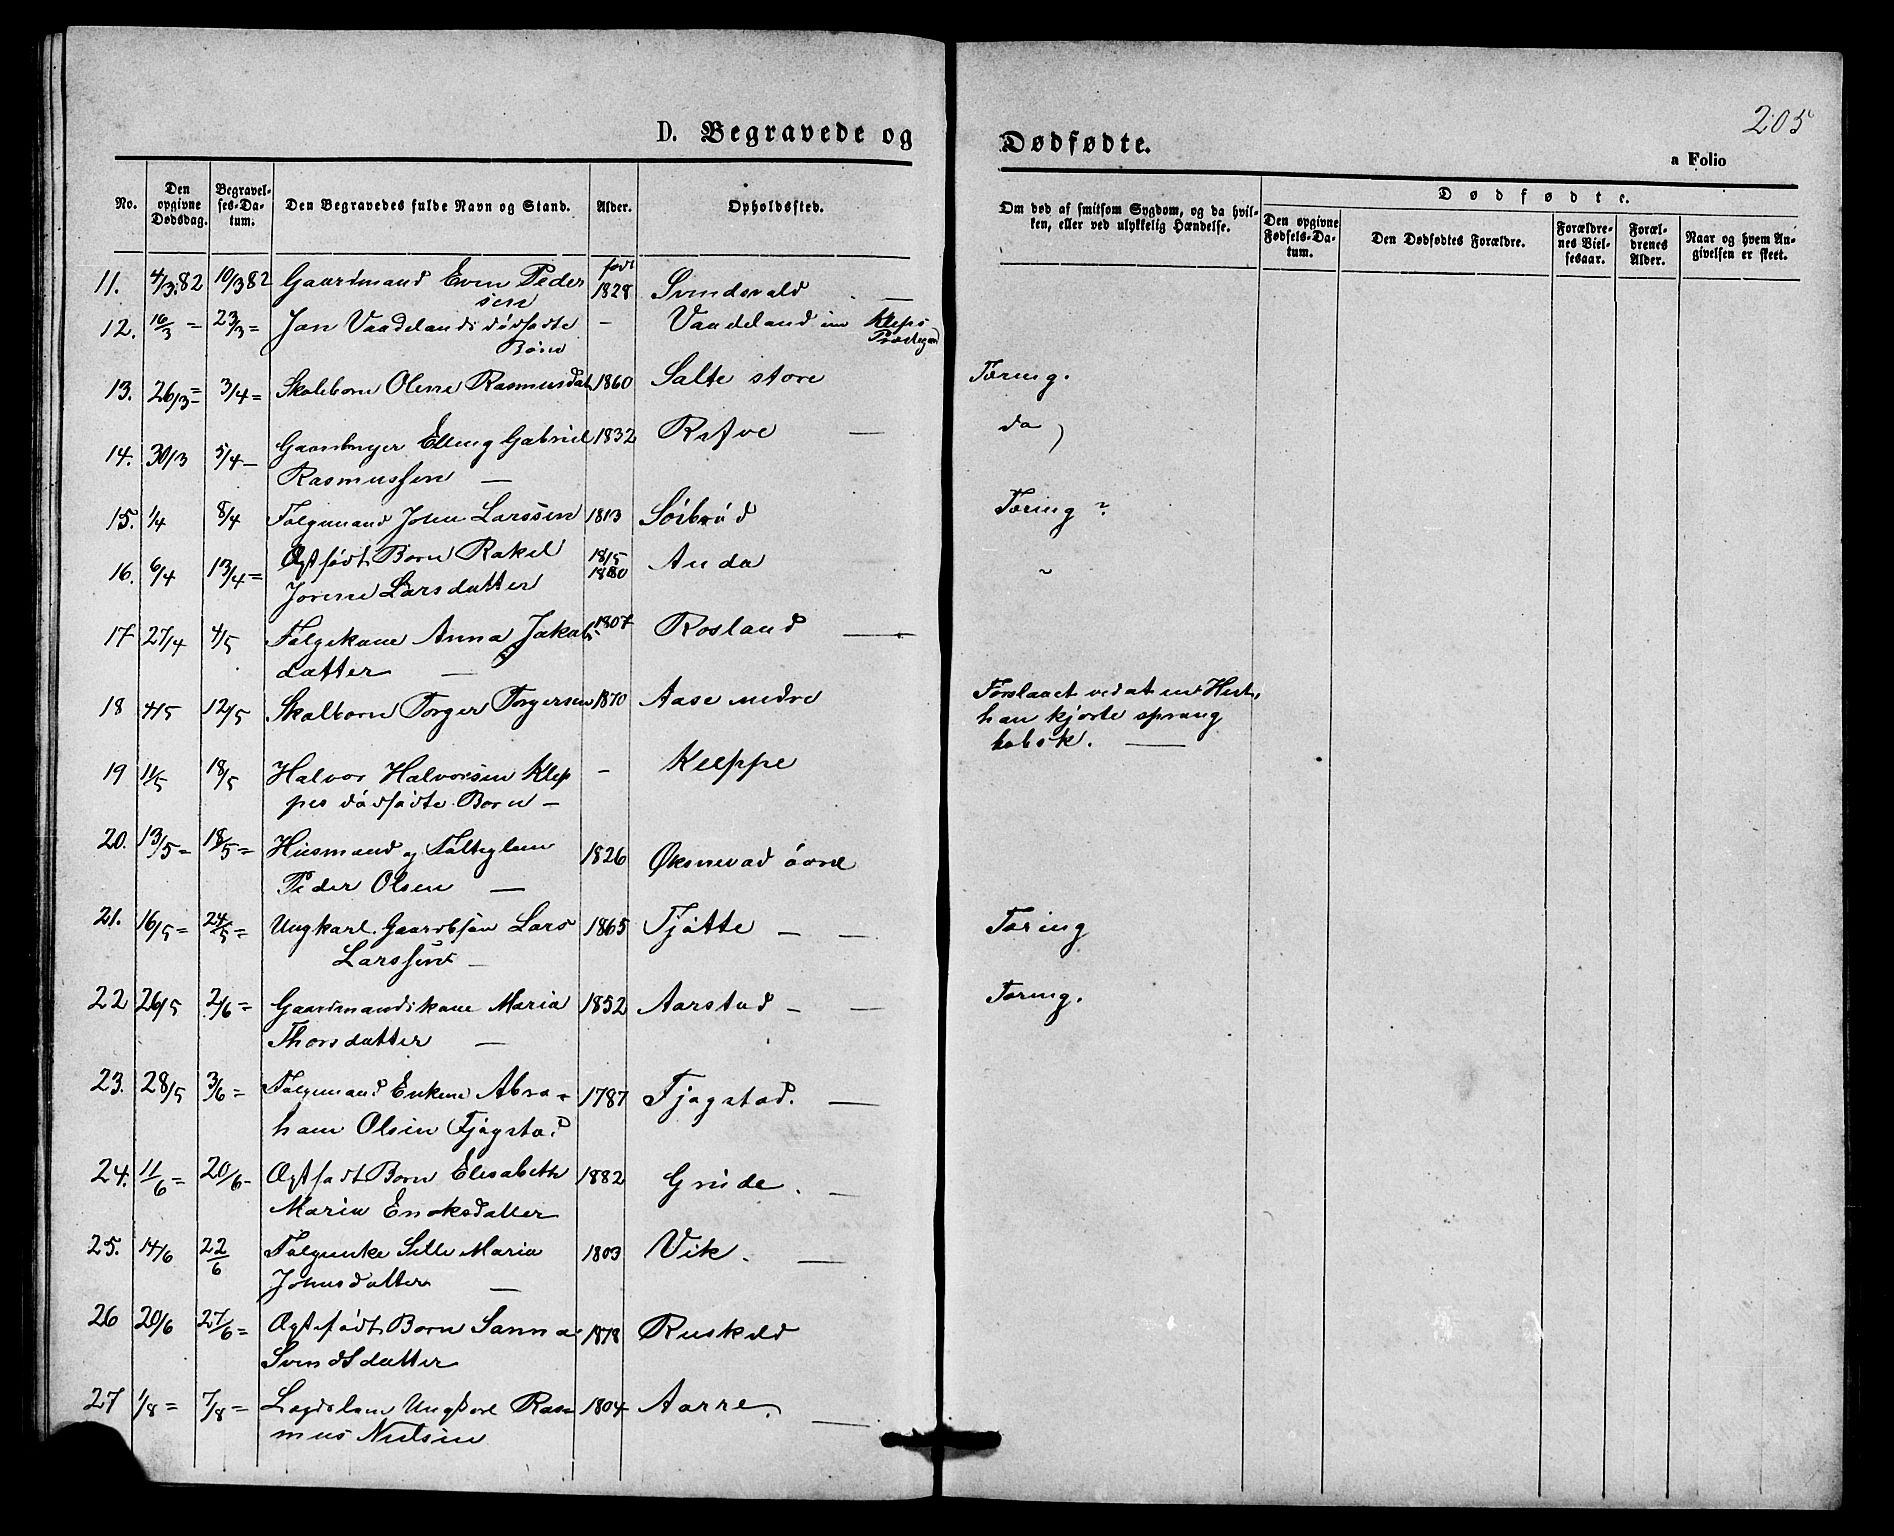 205
D. Begravede og Dødfødte.
a Folio
No.
Den opgivne Dødsdag.
Begravelses-Datum.
Den Begravedes fulde Navn og Stand.
Alder.
Opholdssted.
Om død af smitsom Sygdom, og da hvilken, eller ved ulykkelig Hændelse.
Dødfødte.
Den opgivne Fødsels-Datum.
Den Dødfødtes Forældre.
Forældrenes Vielsesaar.
Forældrenes Alder.
Naar og hvem Angivelsen er skeet.
11. 4/3 82 10/3 82 Gaardmand Even Peder født 1828 Svindsvald —
sen
12. 16/3 = 23/3 = Jan Vaadelands dødfødte — Vaadeland i Kleps
Børn Præstegaard
13. 26/3 = 3/4 = Skolebarn Olene Rasmusdat 1860 Salte store Tæring.
14. 30/3 5/4 — Gaardbruger Elling Gabriel 1832 Reve — do
Rasmussen —
15. 1/4 8/4 Følgemand John Larssen 1813 Sörbröd Tæring ?
16. 6/4 13/4 = Ægtfødt Barn Rakel 18/5 1880 Anda
Jorine Larsdatter
17 27/4 4/5 Følgekone Anna Jakobs- 1807 Rosland —
datter —
18 4/5 12/5 Skolbarn Torger Torgersen 1870 Aase nedre Forslaaet ved at en Hest,
han kjørte sprang
løbsk. —
19 11/5 18/5 Halvor Halvorsen Klep — Kleppe
pes dødfødte Barn —
20. 13/5 = 18/5 = Husmand og Fattiglem 1826 Øksnevad övre
Peder Olsen —
21. 16/5 = 24/5 = Ungkarl Gaardssøn Lars 1865 Tjøtte — — Tæring
Larssen —
22 26/5 2/6 = Gaardmandskone Maria 1852 Aarstad — — Tæring.
Thorsdatter —
23. 28/5 3/6 = Følgemand Enkem Abra= 1787 Fjøgstad. —
ham Olsen Fjøgstad
24. 11/6 = 20/6 - Ægtfødt Barn Elisabeth 1882 Grude. —
Maria Enoksdatter
25. 14/6 22/6 Følgeenke Sille Maria 1803 Vik. —
Johnsdatter —
26 20/6 27/6 = Ægtefødt Barn Sanna 1878
Svendsdatter
27 1/8 = 7/8 = Lægdslem Ungkarl Ras= 1804 Aarre. —
mus Nielsen